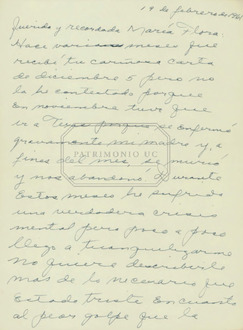 19 de febrero de 1941
Querida y recordada María Flora:
Hace varios meses que
recibí tu cariñosa carta
de diciembre 5 pero no
la he contestado porque
En noviembre tuve que
ir a porque se enfermó
gravemente mi madre y, a
fines del mes se murió
y nos abandonó. Durante
Estos meses he sufrido
una verdadera crisis
mental pero poco a poco
llego a tranquilizarme
No quiero describirte
más de lo necesario que
Estado triste En cuanto
al peor golpe que la
PATRIMONIO UC